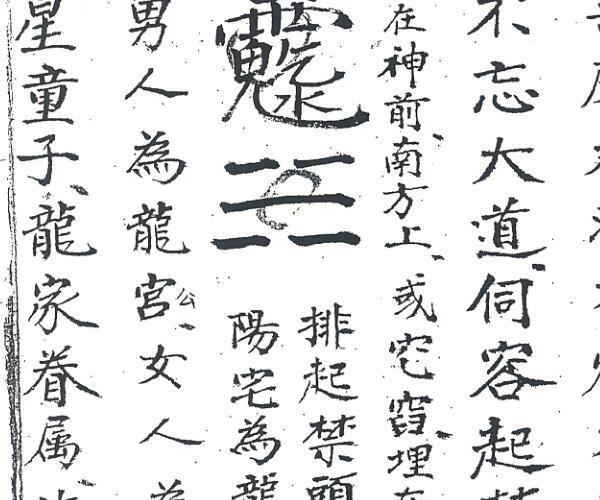 不忘大道伺容起
在神前南方上或宅窟埋在
排起禁頭
陽宅為龍
男人為龍宮公女人為
星童子龍家眷属